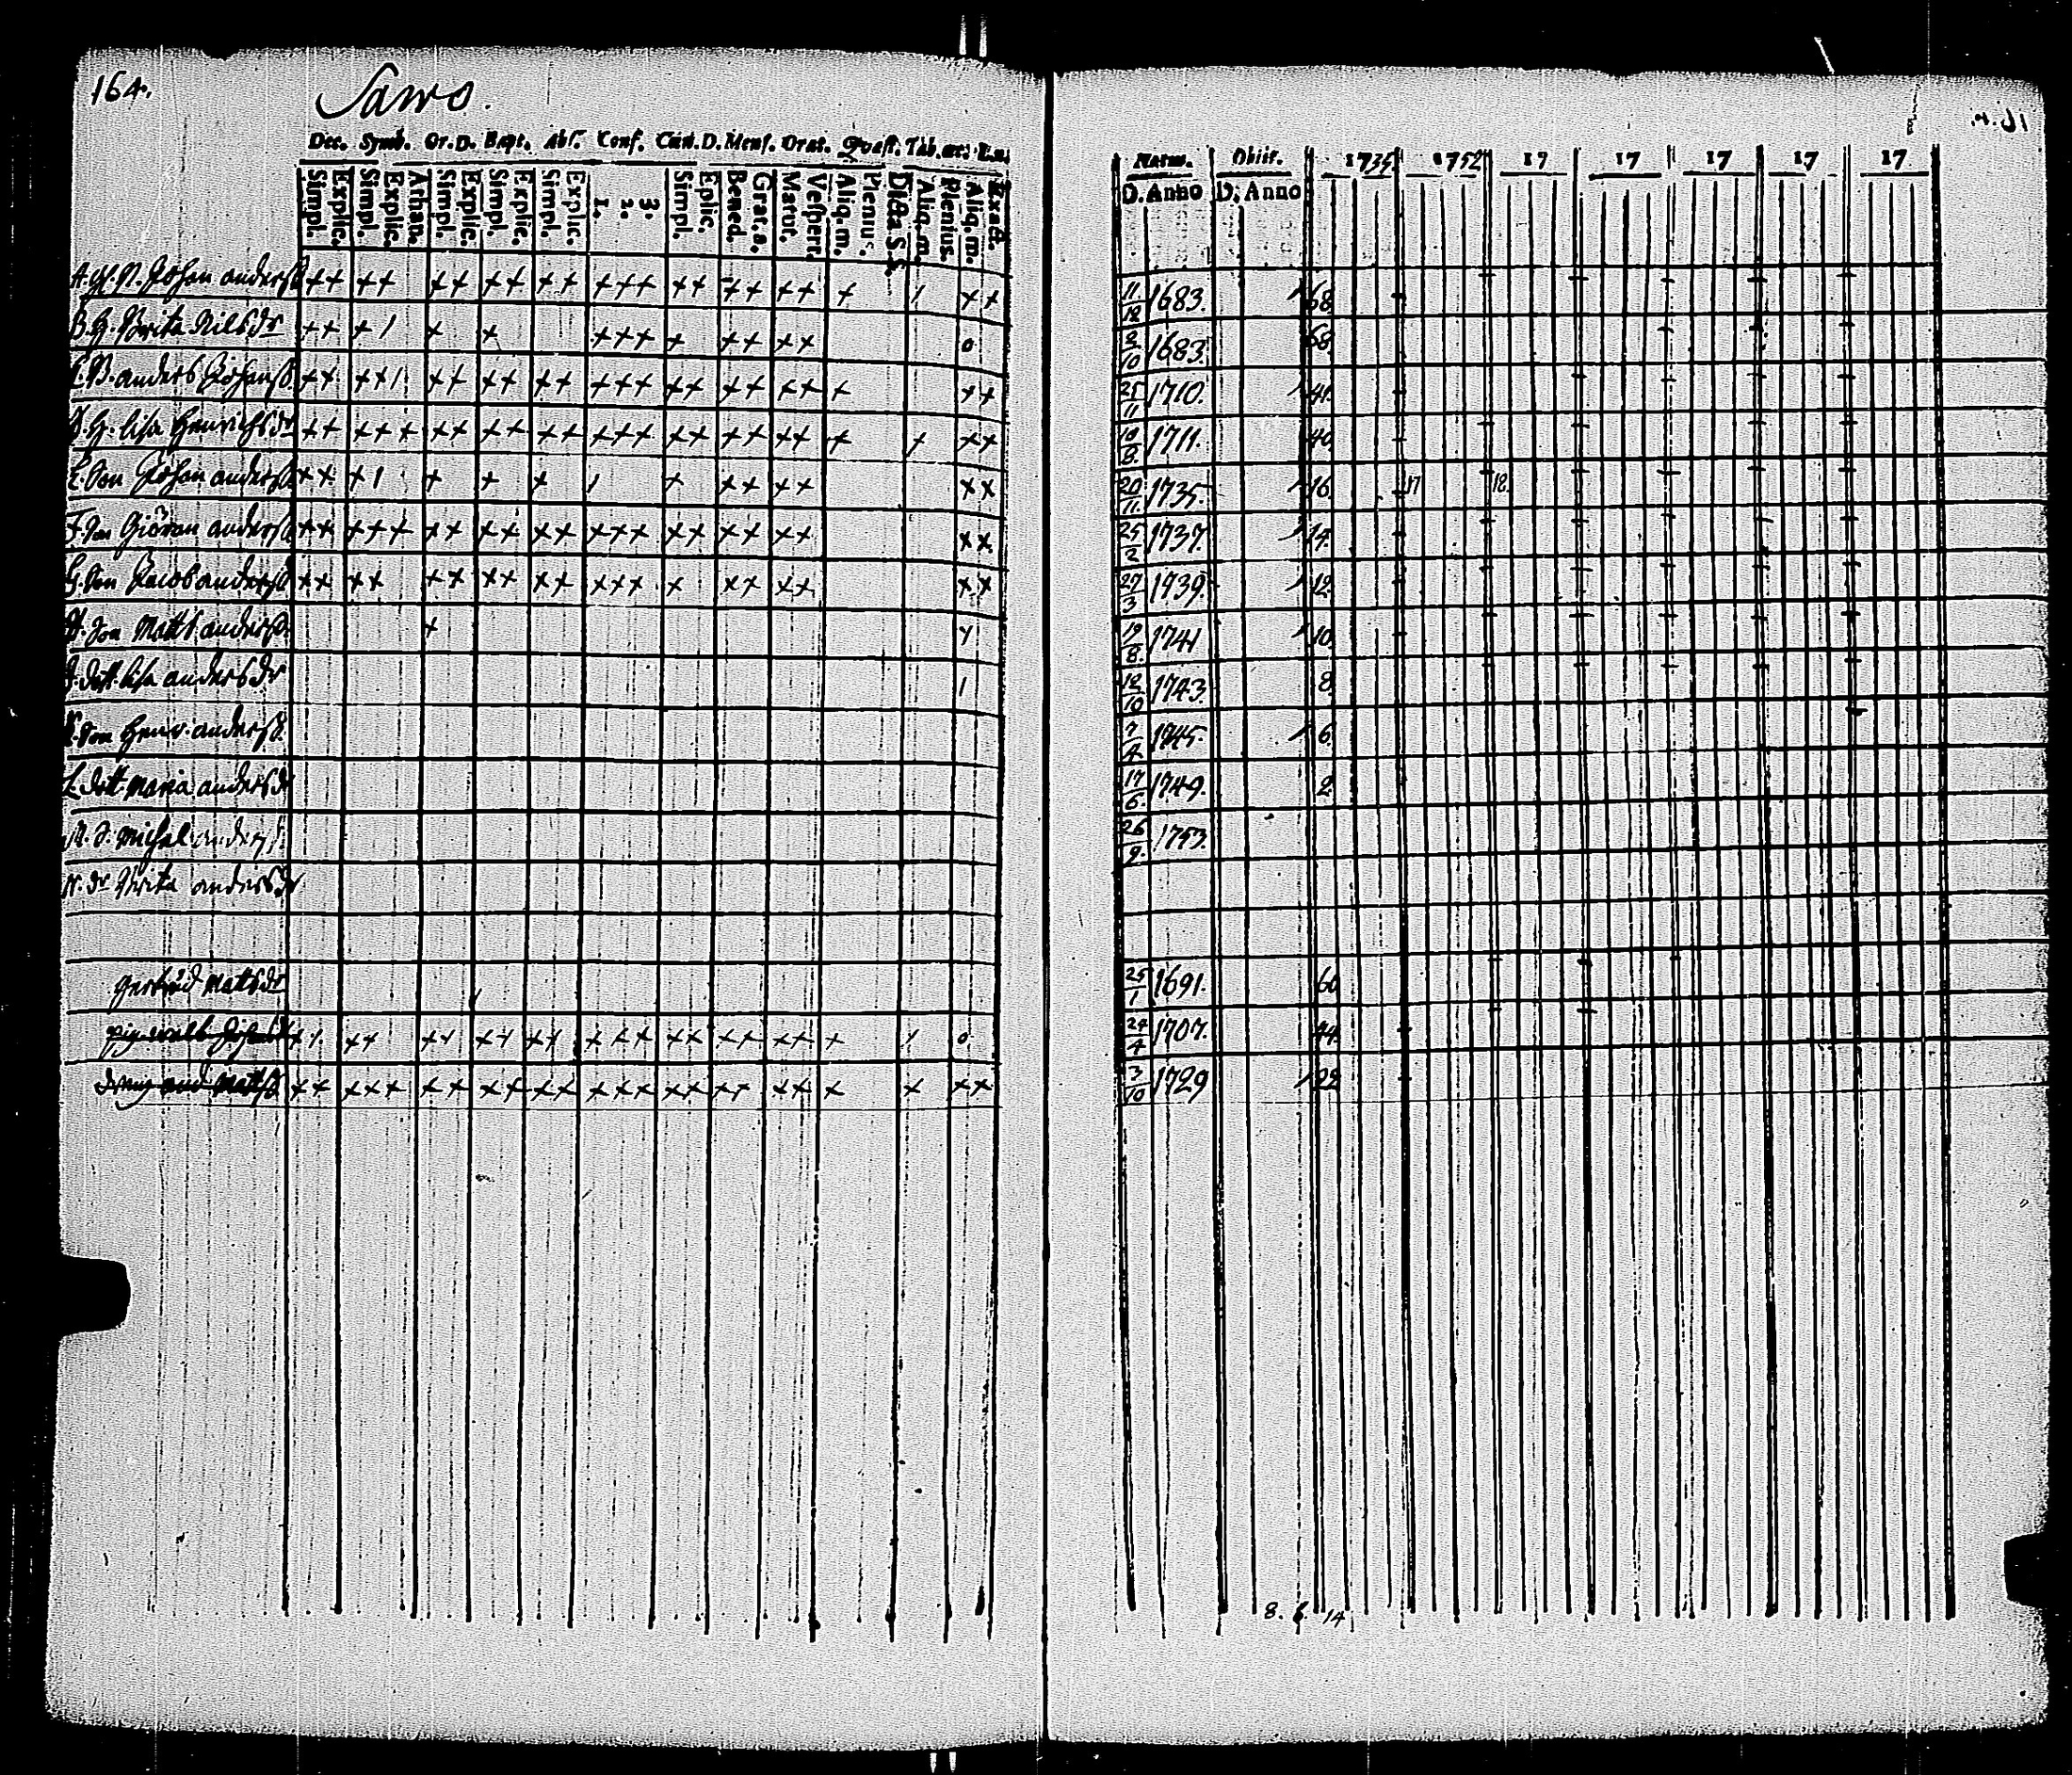 164.
Sawo.
Dec. Symb. Or. D. Bapt. Abs. Conf. Cœn. D. Mens. Orat. Quæst. Tab. œc.
Simpl. Explic. Simpl. Explic. Athan. Simpl. Explic. Simpl. Explic. Simpl. Explic. 1. 2. 3. Simpl. Eplic. Bened. Grat. a. Matut. Vespert. Aliq. m. Plenius. Dicta S. S. Aliq. m. Plenius. Aliq. m. Exact.
Natus. Obiit. 1735 1752 17 17 17 17 17
D. Anno D. Anno
A. Johan anders ++ ++ ++ ++ ++ +++ ++ ++ ++ + / ++ 11/12 1683. 68.
B. H. Brita Nilsdr ++ + / + + +++ + ++ ++ 0 2/10 1683. 68.
anders Johans ++ ++/ ++ ++ ++ +++ ++ ++ ++ + ++ 25/11 1710. 41.
lisa Henrichsdr ++ +++ ++ ++ ++ +++ ++ ++ ++ + + ++ 1711. 40.
E. Son Johan anders ++ + / + + + / + ++ ++ ++ 20/11. 1735. 16. 17 18.
F. Son Giöran anders ++ +++ ++ ++ ++ +++ ++ ++ ++ ++ 25/2 1737. 14.
G. Son Jacob anders ++ ++ ++ ++ ++ +++ + ++ ++ ++ 27/3 1739. 12.
H. Son Matts anders + 19/8. 1741 10.
J. dott. lisa andersdr / 12/10 1743. 8.
K. Son Henr. anders 7/4 1745. 6.
L. dott. Maria andersdr 17/6. 1749. 2.
M. S. Michel anders 26/9. 1753.
N. dr Brita andersdr
Gertrud Mattsdr 25/1 1691. 60
24/4 1707. 44.
and Matts ++ +++ ++ ++ ++ +++ ++ ++ ++ + + ++ 3/10 1729 22
8. 6. 14